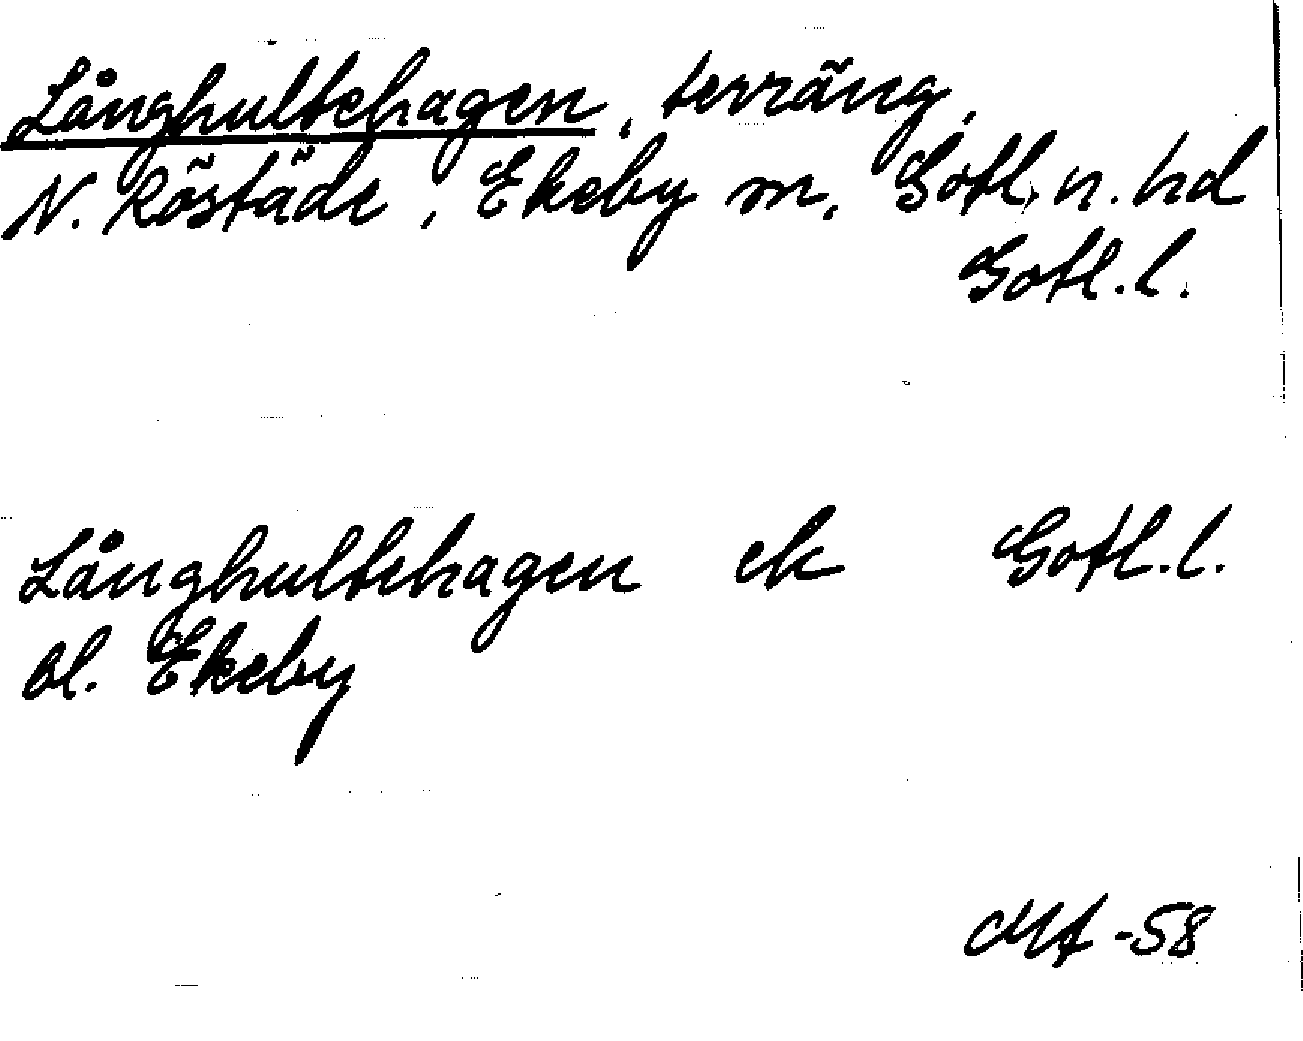 Långhultehagen, terräng,
N. Röstäde, Ekeby sn, Gotl. n. hd
Gotl. l.
Långhultehagen ek Gotl. l.
bl. Ekeby
Mf -58